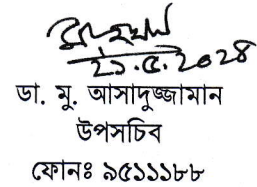 ২১.৫.২০২৪
ডা. মু. আসাদুজ্জামান
উপসচিব
ফোনঃ ৯৫১১১৮৮